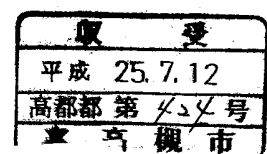 収受
平成 25.7.12
高都都 第 424 号
高槻市